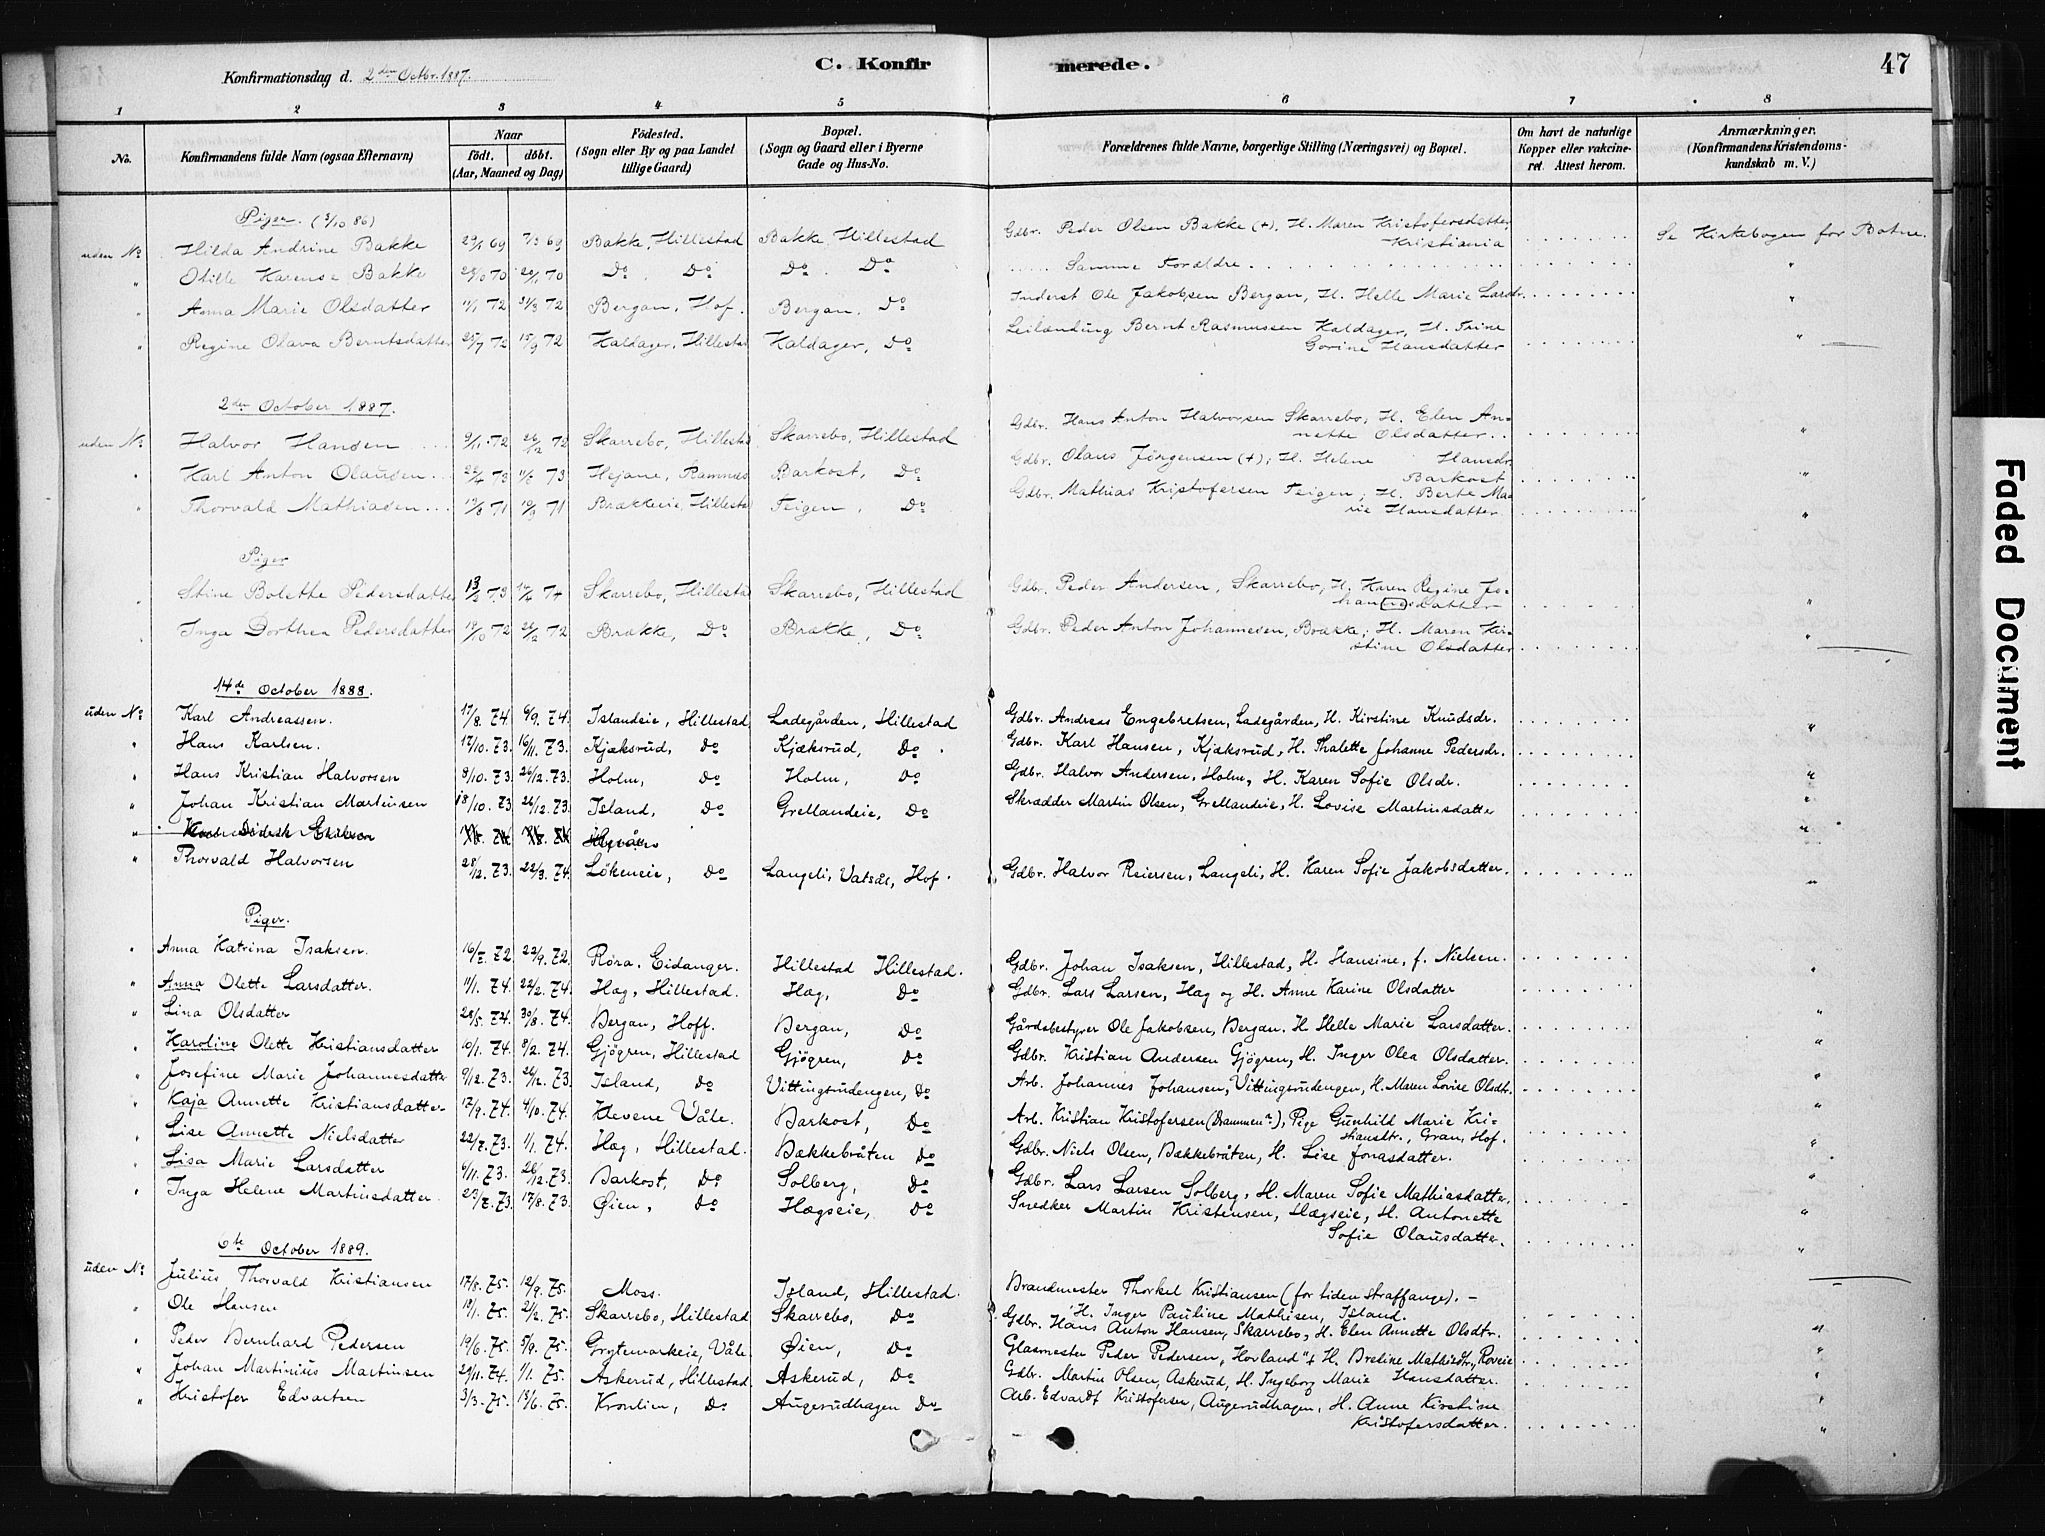 Konfirmationsdag d. 2den Octbr. 1887.
C. Konfirmerede.
47
1 2 3 4 5 6 7 8
No. Konfirmandens fulde Navn (ogsaa Efternavn) Naar födt. döbt. (Aar, Maaned og Dag) Födested. (Sogn eller By og paa Landet tillige Gaard) Bopæl. (Sogn og Gaard eller i Byerne Gade og Hus-No. Forældrenes fulde Navne, borgerlige Stilling (Næringsvei) og Bopæl. Om havt de naturlige Kopper eller vakcineret. Attest herom. Anmærkninger. (Konfirmandens Kristendomskundskab m. V.)
Piger. (3/10 86)
uden No Hilda Andrine Bakke 29/1 69 7/3 69 Bakke, Hillestad Bakke, Hillestad Gdbr. Peder Olsen Bakke (+), H. Maren Kristofersdatter, Kristiania Se Kirkebogen for Botne.
" Otilie Karense Bakke Do. Do Do. Do Samme Forældre "
" Anna Marie Olsdatter 11/1 72 31/3 72 Bergan, Hof. Bergan, Do Inderst Ole Jakobsen Bergan, H. Helle Marie Larsdr. "
" Regine Olava Berntsdatter 25/7 72 15/9 72 Haldager, Hillestad Haldager, Do Leilænding Bernt Rasmussen Haldager, H. Trine Gorine Hansdatter "
2den October 1887.
uden No Halvor Hansen 9/11 72 26/12 72 Skarrebo, Hillestad Skarrebo, Hillestad Gdbr. Hans Anton Halvorsen Skarrebo, H. Elen Annette Olsdatter "
" Karl Anton Olausen 22/4 73 11/6 73 Hejane, Ramnes Barkost, Do Gdbr. Olaus Jörgensen (+), H. Helene Hansdr. Barkost "
" Thorvald Mathiasen Brækkeie, Hillestad Teigen, Do Gdbr. Mathias Kristofersen Teigen, H. Berte Marie Hansdatter "
Piger
" Stine Bolette Pedersdatter Skarrebo, Hillestad Skarrebo, Hillestad Gdbr. Peder Andersen, Skarrebo, H. Karen Regine Johannesdatter "
" Inga Dorthea Pedersdatter 19/10 72 26/12 72 Brække, Do Brække, Do Gdbr. Peder Anton Johannesen, Brække; H. Maren Kirstine Olsdatter "
14de October 1888.
uden No Karl Andreassen. 17/8. 74. 6/9. 74. Islandeie, Hillestad Ladegården, Hillestad Gdbr. Andreas Engebretsen, Ladegården, H. Kirstine Knudsdr. "
" Hans Karlsen. 17/10. 73. 16/11. 73. Kjæksrud, Do Kjæksrud, Do Gdbr. Karl Hansen, Kjæksrud, H. Thalette Johanne Pedersdr. "
" Hans Kristian Halvorsen 8/10. 73. 26/12. 73. Holm, Do Holm, Do Gdbr. Halvor Andersen, Holm, H. Karen Sofie Olsdr. "
" Johan Kristian Martinsen 18/10. 73. 26/12. 73. Island, Do Grellandeie, Do Skrædder Martin Olsen, Grellandeie, H. Lovise Martinsdatter "
" Eriksen "
" Thorvald Halvorsen 28/12. 73. 22/3. 74. Lökeneie, Do Langeli, Vatsås, Hof. Gdbr. Halvor Reiersen, Langeli, H. Karen Sofie Jakobsdatter. "
Piger.
" Anna Katrina Isaksen. 16/7. 72. 22/9. 72. Röra, Eidanger. Hillestad Hillestad. Gdbr. Johan Isaksen, Hillestad, H. Hansine, f. Nielsen. "
" Anna Olette Larsdatter. 11/1. 74. 22/2. 74. Hag, Hillestad. Hag, Do Gdbr. Lars Larsen, Hag og H. Anne Karine Olsdatter "
" Lina Olsdatter 28/5. 74. 30/8. 74. Bergan, Hoff. Bergan, Do Gårdsbestyrer Ole Jakobsen, Bergan. H. Helle Marie Larsdatter. "
" Karoline Olette Kristiansdatter 10/1. 74. 8/2. 74. Gjögren, Hillestad Gjögren, Do Gdbr. Kristian Andersen Gjögren, H. Inger Olea Olsdatter. "
" Josefine Marie Johannesdatter 9/12. 73. 26/12. 73. Island, Do Vittingsrudengen, Do Arb. Johannes Johansen, Vittingsrudengen, H. Maren Lovise Olsdt. "
" Kaja Annette Kristiansdatter. 17/9. 74. 4/10. 74. Hevene Våle. Barkost, Do Arb. Kristian Kristofersen (Drammen?), Pige Gunhild Marie Kristiansdtr., Gran, Hof. "
" Lise Annette Nielsdatter 22/7. 73. 1/1. 74. Hag, Hillestad. Bækkebråten Do Gdbr. Niels Olsen, Bækkebråten, H. Lise Jonasdatter. "
" Lisa Marie Larsdatter 6/11. 73. 26/12. 73. Barkost, Do Solberg, Do Gdbr. Lars Larsen Solberg, H. Maren Sofie Mathiasdatter. "
" Inga Helene Martinsdatter. 23/7. 73. 17/8. 73. Øien, Do Hægseie, Do Snedker Martin Kristensen, Hægseie, H. Antonette Sofie Olausdatter. "
6te October 1889.
uden No Julius Thorvald Kristiansen 17/8. 75. 12/9. 75. Moss. Island, Hillestad. Brandmester Thorkel Kristiansen (for tiden straffange). - H. Inger Pauline Mathisen, Island.
" Ole Hansen 19/1. 75. 2/2. 75. Skarrebo, Hillestad Skarrebo, Do Gdbr. Hans Anton Hansen, Skarrebo, H. Elen Annette Olsdtr. "
" Peder Bernhard Pedersen 19/6. 75. 5/9. 75. Grytemarkeie, Våle Øien, Do Glasmester Peder Pedersen, Hovland "+ H. Breline Mathisdtr, Roveie "
" Johan Martinius Martinsen 29/11. 74. 1/1. 75. Askerud, Hillestad. Askerud, Do Gdbr. Martin Olsen, Askerud, H. Ingeborg Marie Hansdatter. "
" Kristofer Edvartsen 3/3. 75. 13/6. 75. Kronlien, Do Augerudhagen Do Arb. Edvardt Kristofersen, Augerudhagen, H. Anne Kirstine Kristofersdatter. "
Faded Document